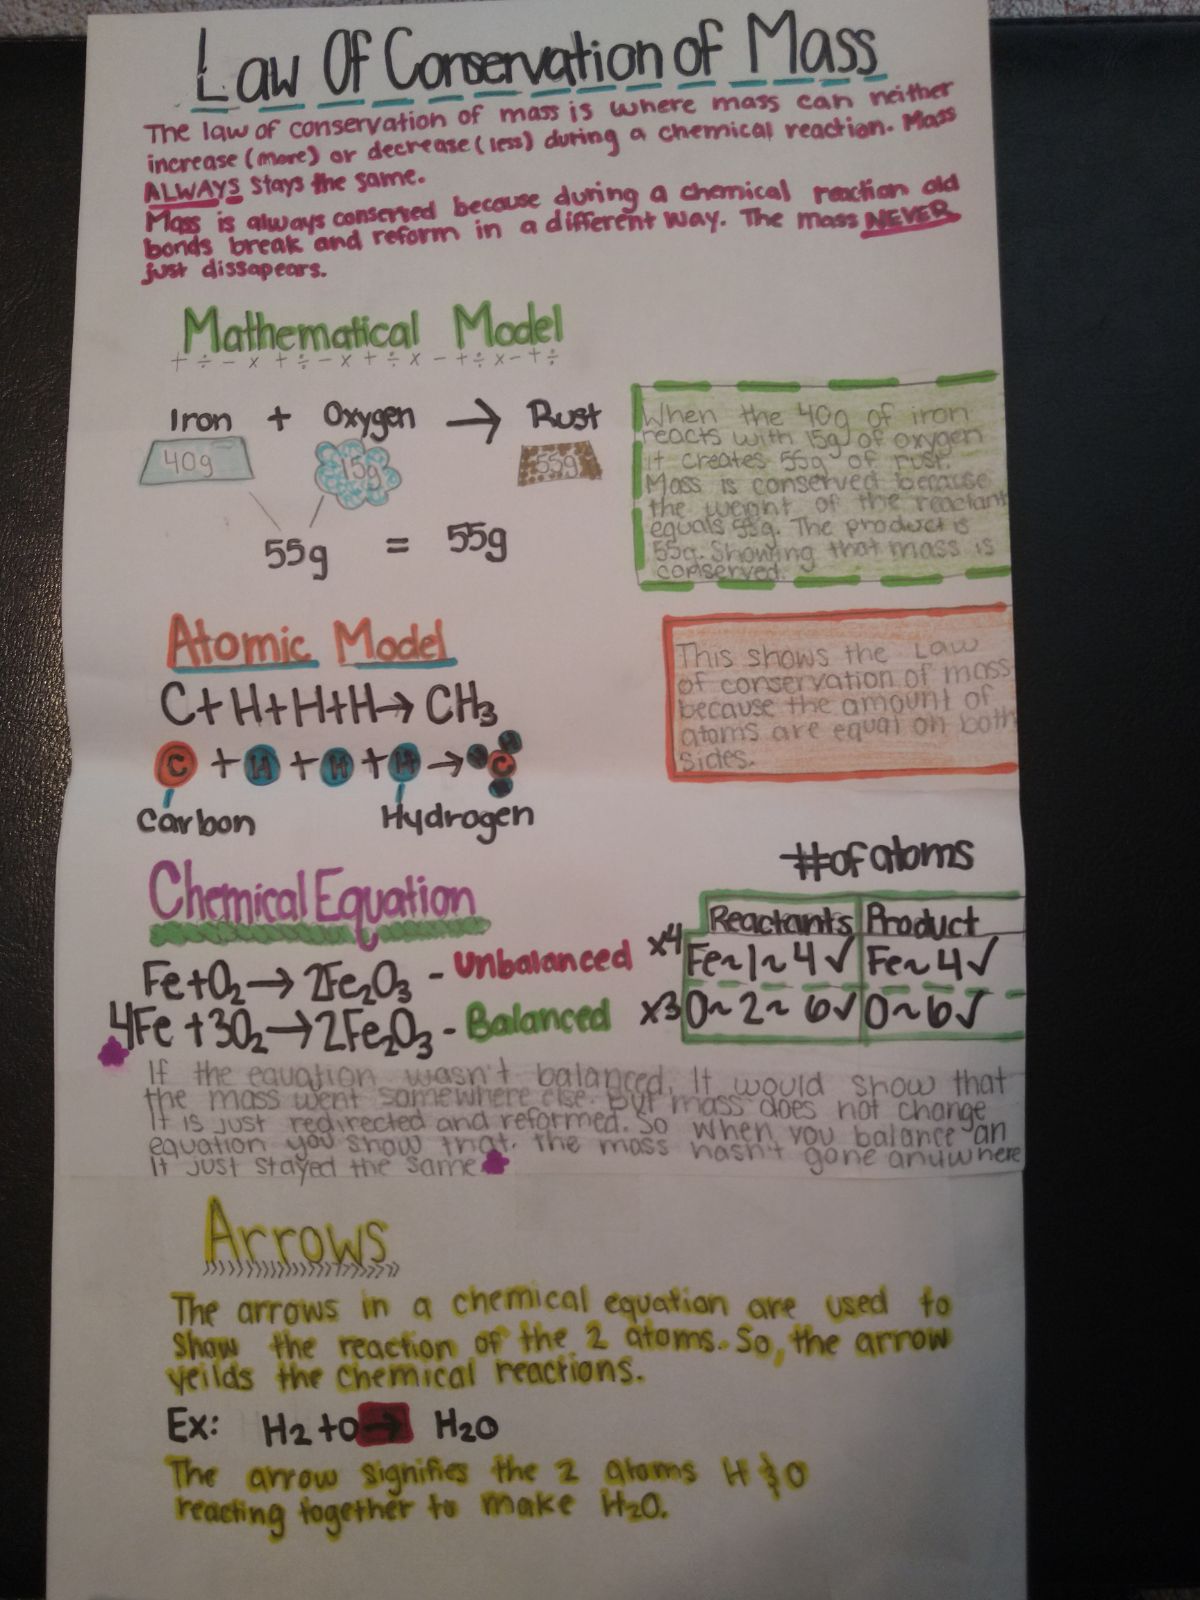 Law Of Conservation of Mass
The law of conservation of mass is where mass can neither
increase (more) or decrease (less) during a chemical reaction. Mass
ALWAYS stays the same.
Mass is always conserved because during a chemical reaction old
bonds break and reform in a different way. The mass NEVER
just dissapears.
Mathematical Model
+ ÷ - x + ÷ - x + ÷ x - + ÷ x - + ÷
Iron + Oxygen → Rust
40g 15g 55g
55g = 55g
When the 40g of iron
reacts with 15g of oxygen
it creates 55g of rust.
Mass is conserved because
the weight of the reactant
equals 55g. The product is
55g. Showing that mass is
conserved.
Atomic Model
C+H+H+H→ CH₃
C + H + H + H → H C
Carbon Hydrogen
This shows the Law
of conservation of mass
because the amount of
atoms are equal on both
sides.
Chemical Equation
Fe+O₂→ 2Fe₂O₃ - Unbalanced
4Fe +3O₂→2Fe₂O₃ - Balanced
#of atoms
Reactants Product
x4 Fe~1~4✓ Fe~4✓
x3 O~2~6✓ O~6✓
If the equation wasn't balanced, It would show that
the mass went somewhere else. But mass does not change
It is just redirected and reformed. So when you balance an
equation you show that, the mass hasn't gone anywhere
It just stayed the same
Arrows
The arrows in a chemical equation are used to
show the reaction of the 2 atoms. So, the arrow
yeilds the chemical reactions.
Ex: H2 +O → H₂O
The arrow signifies the 2 atoms H & O
reacting together to make H₂O.